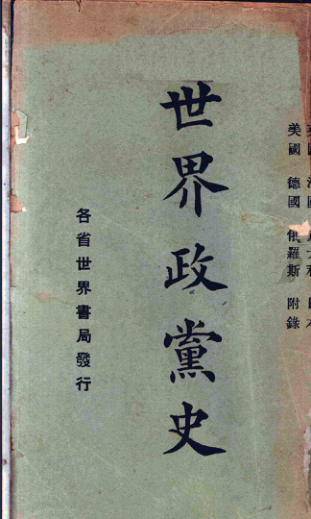 美國 德國 俄羅斯 附錄
世界政黨史
各省世界書局發行